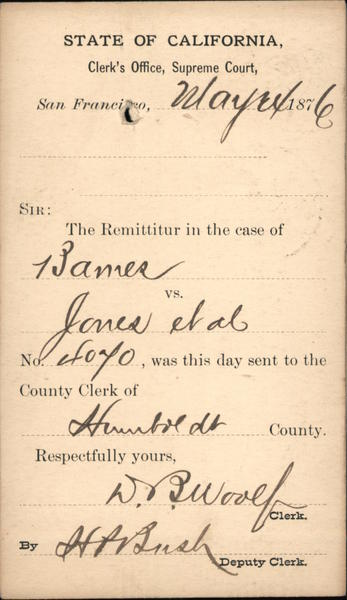 STATE OF CALIFORNIA,
Clerk's Office, Supreme Court,
San Francisco, May 24 1876
SIR:
The Remittitur in the case of
Barnes
vs.
Jones et al
No. 4070, was this day sent to the
County Clerk of
Humboldt County.
Respectfully yours,
D. B. Woolf
Clerk.
By H A Bush
Deputy Clerk.